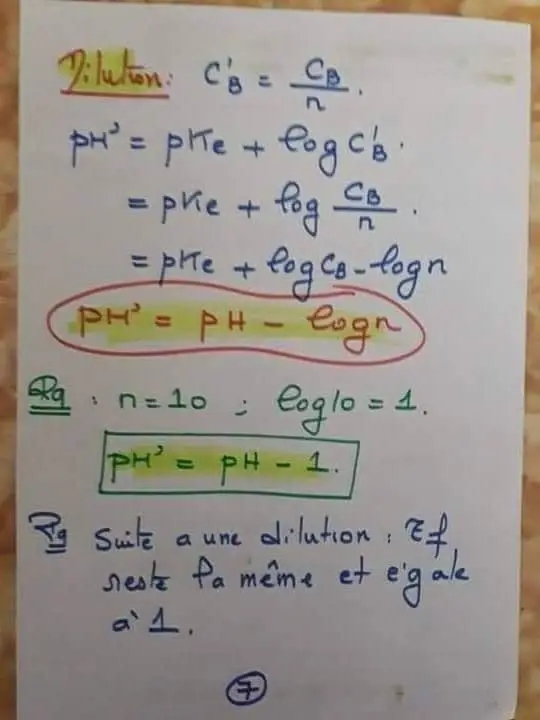 Dilution: C'B = CB/n.
pH' = pKe + log C'B.
= pKe + log CB/n.
= pKe + log CB - log n
pH' = pH - log n
Rq : n = 10 ; log 10 = 1.
pH' = pH - 1.
Rq Suite a une dilution : τf
reste la même et égale
à 1.
7